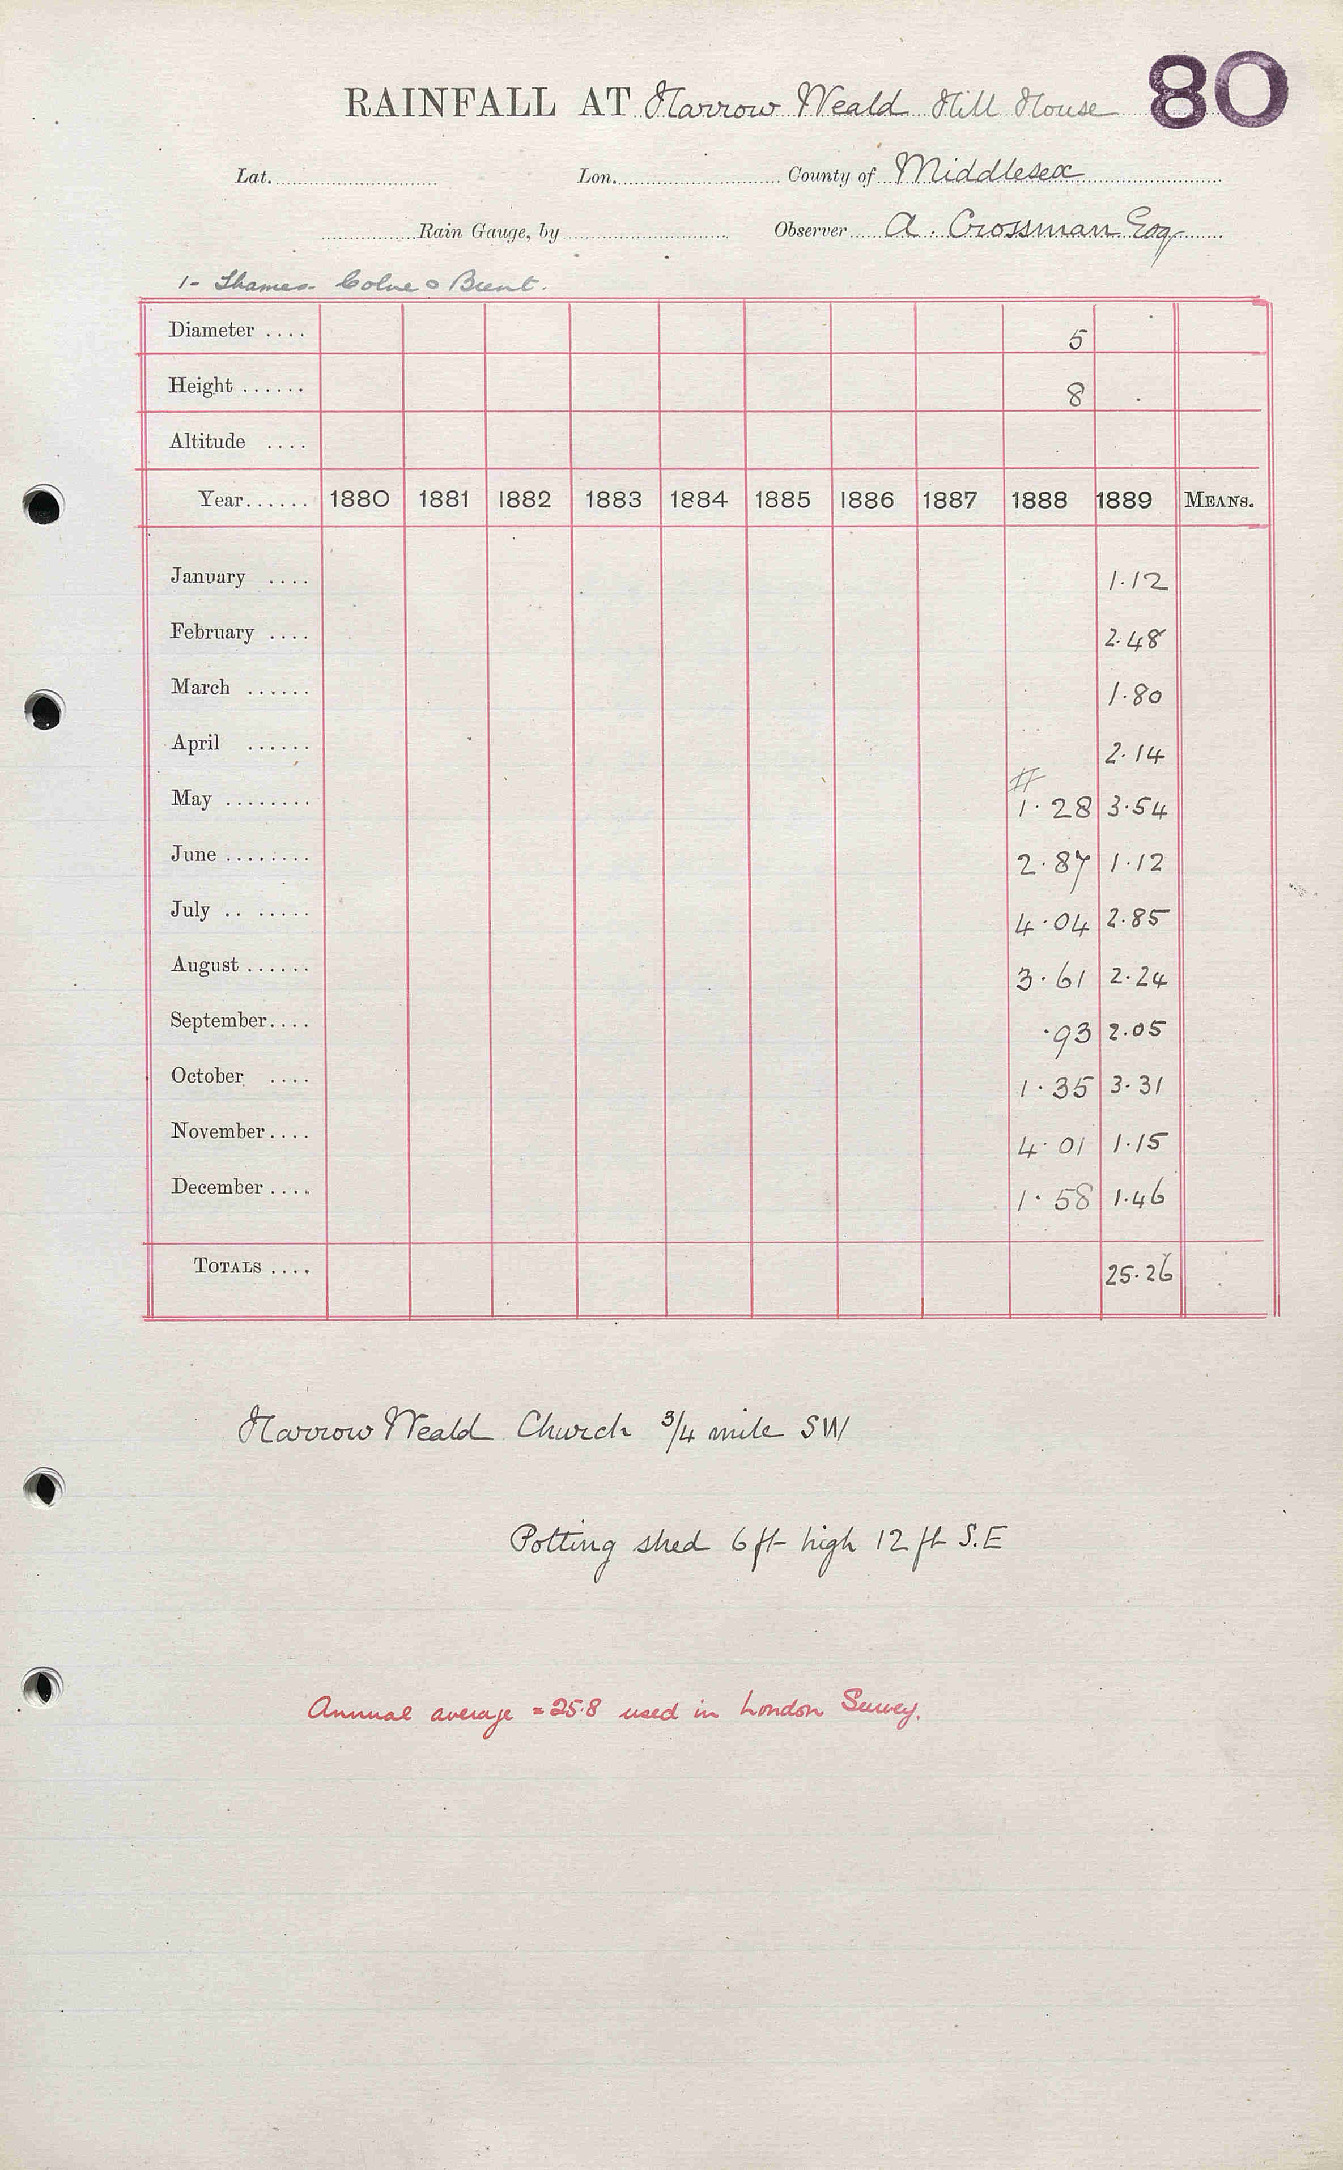 80
RAINFALL AT Harrow Weald Hill House
Lat. Lon. County of Middlesex
Rain Gauge, by Observer A. Crossman Esq
1- Thames- Colne & Brent.
Diameter .... 5
Height ...... 8
Altitude ....
Year...... 1880 1881 1882 1883 1884 1885 1886 1887 1888 1889 MEANS.
January .... 1.12
February .... 2.48
March ...... 1.80
April ...... 2.14
#
May ........ 1.28 3.54
June ........ 2.87 1.12
July .. ..... 4.04 2.85
August ...... 3.61 2.24
September.... .93 2.05
October .... 1.35 3.31
November.... 4.01 1.15
December .... 1.58 1.46
TOTALS .... 25.26
Harrow Weald Church 3/4 mile SW
Potting shed 6 ft high 12 ft S.E
Annual average = 25.8 used in London Survey.